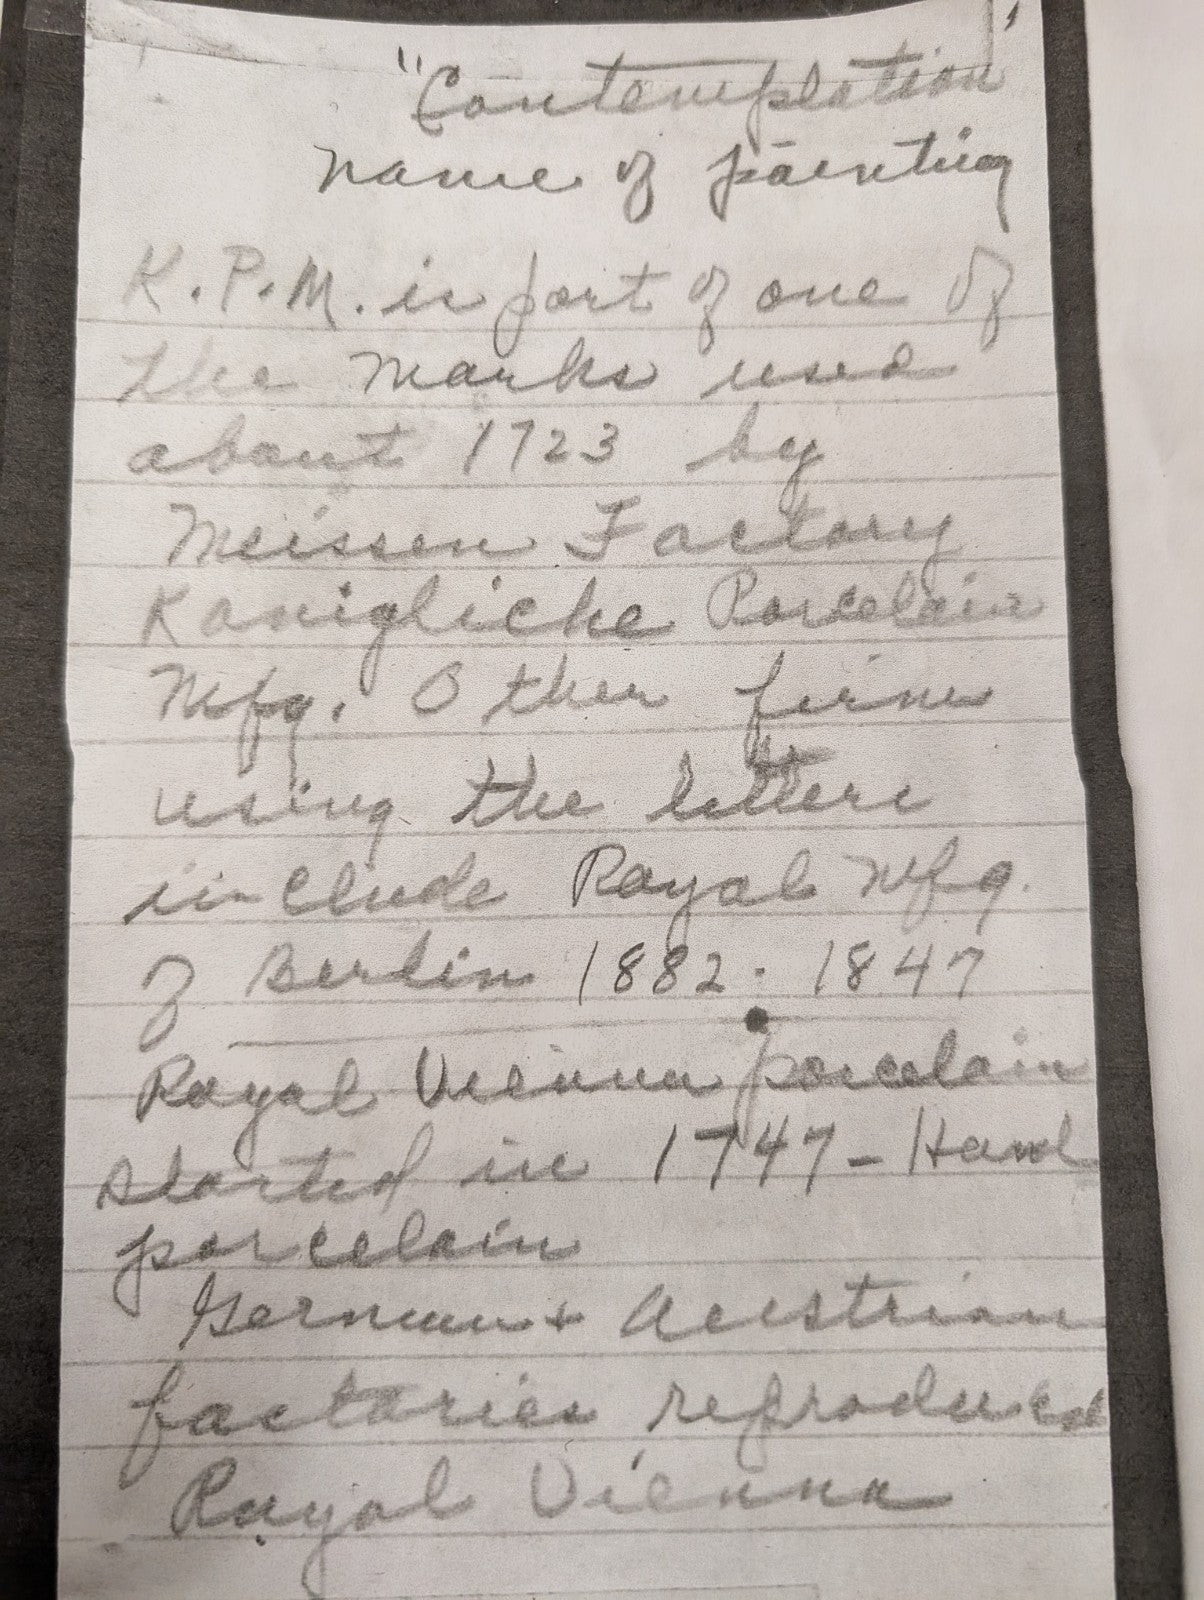 "Contemplation"
name of painting
K.P.M. is part of one of
the marks used
about 1723 by
Meissen Factory
Konigliche Porcelain
Mfg. Other firms
using the letters
include Royal Mfg.
of Berlin 1882 · 1847
Royal Vienna porcelain
started in 1747 - Hard
porcelain
German + Austrian
factories reproduced
Royal Vienna